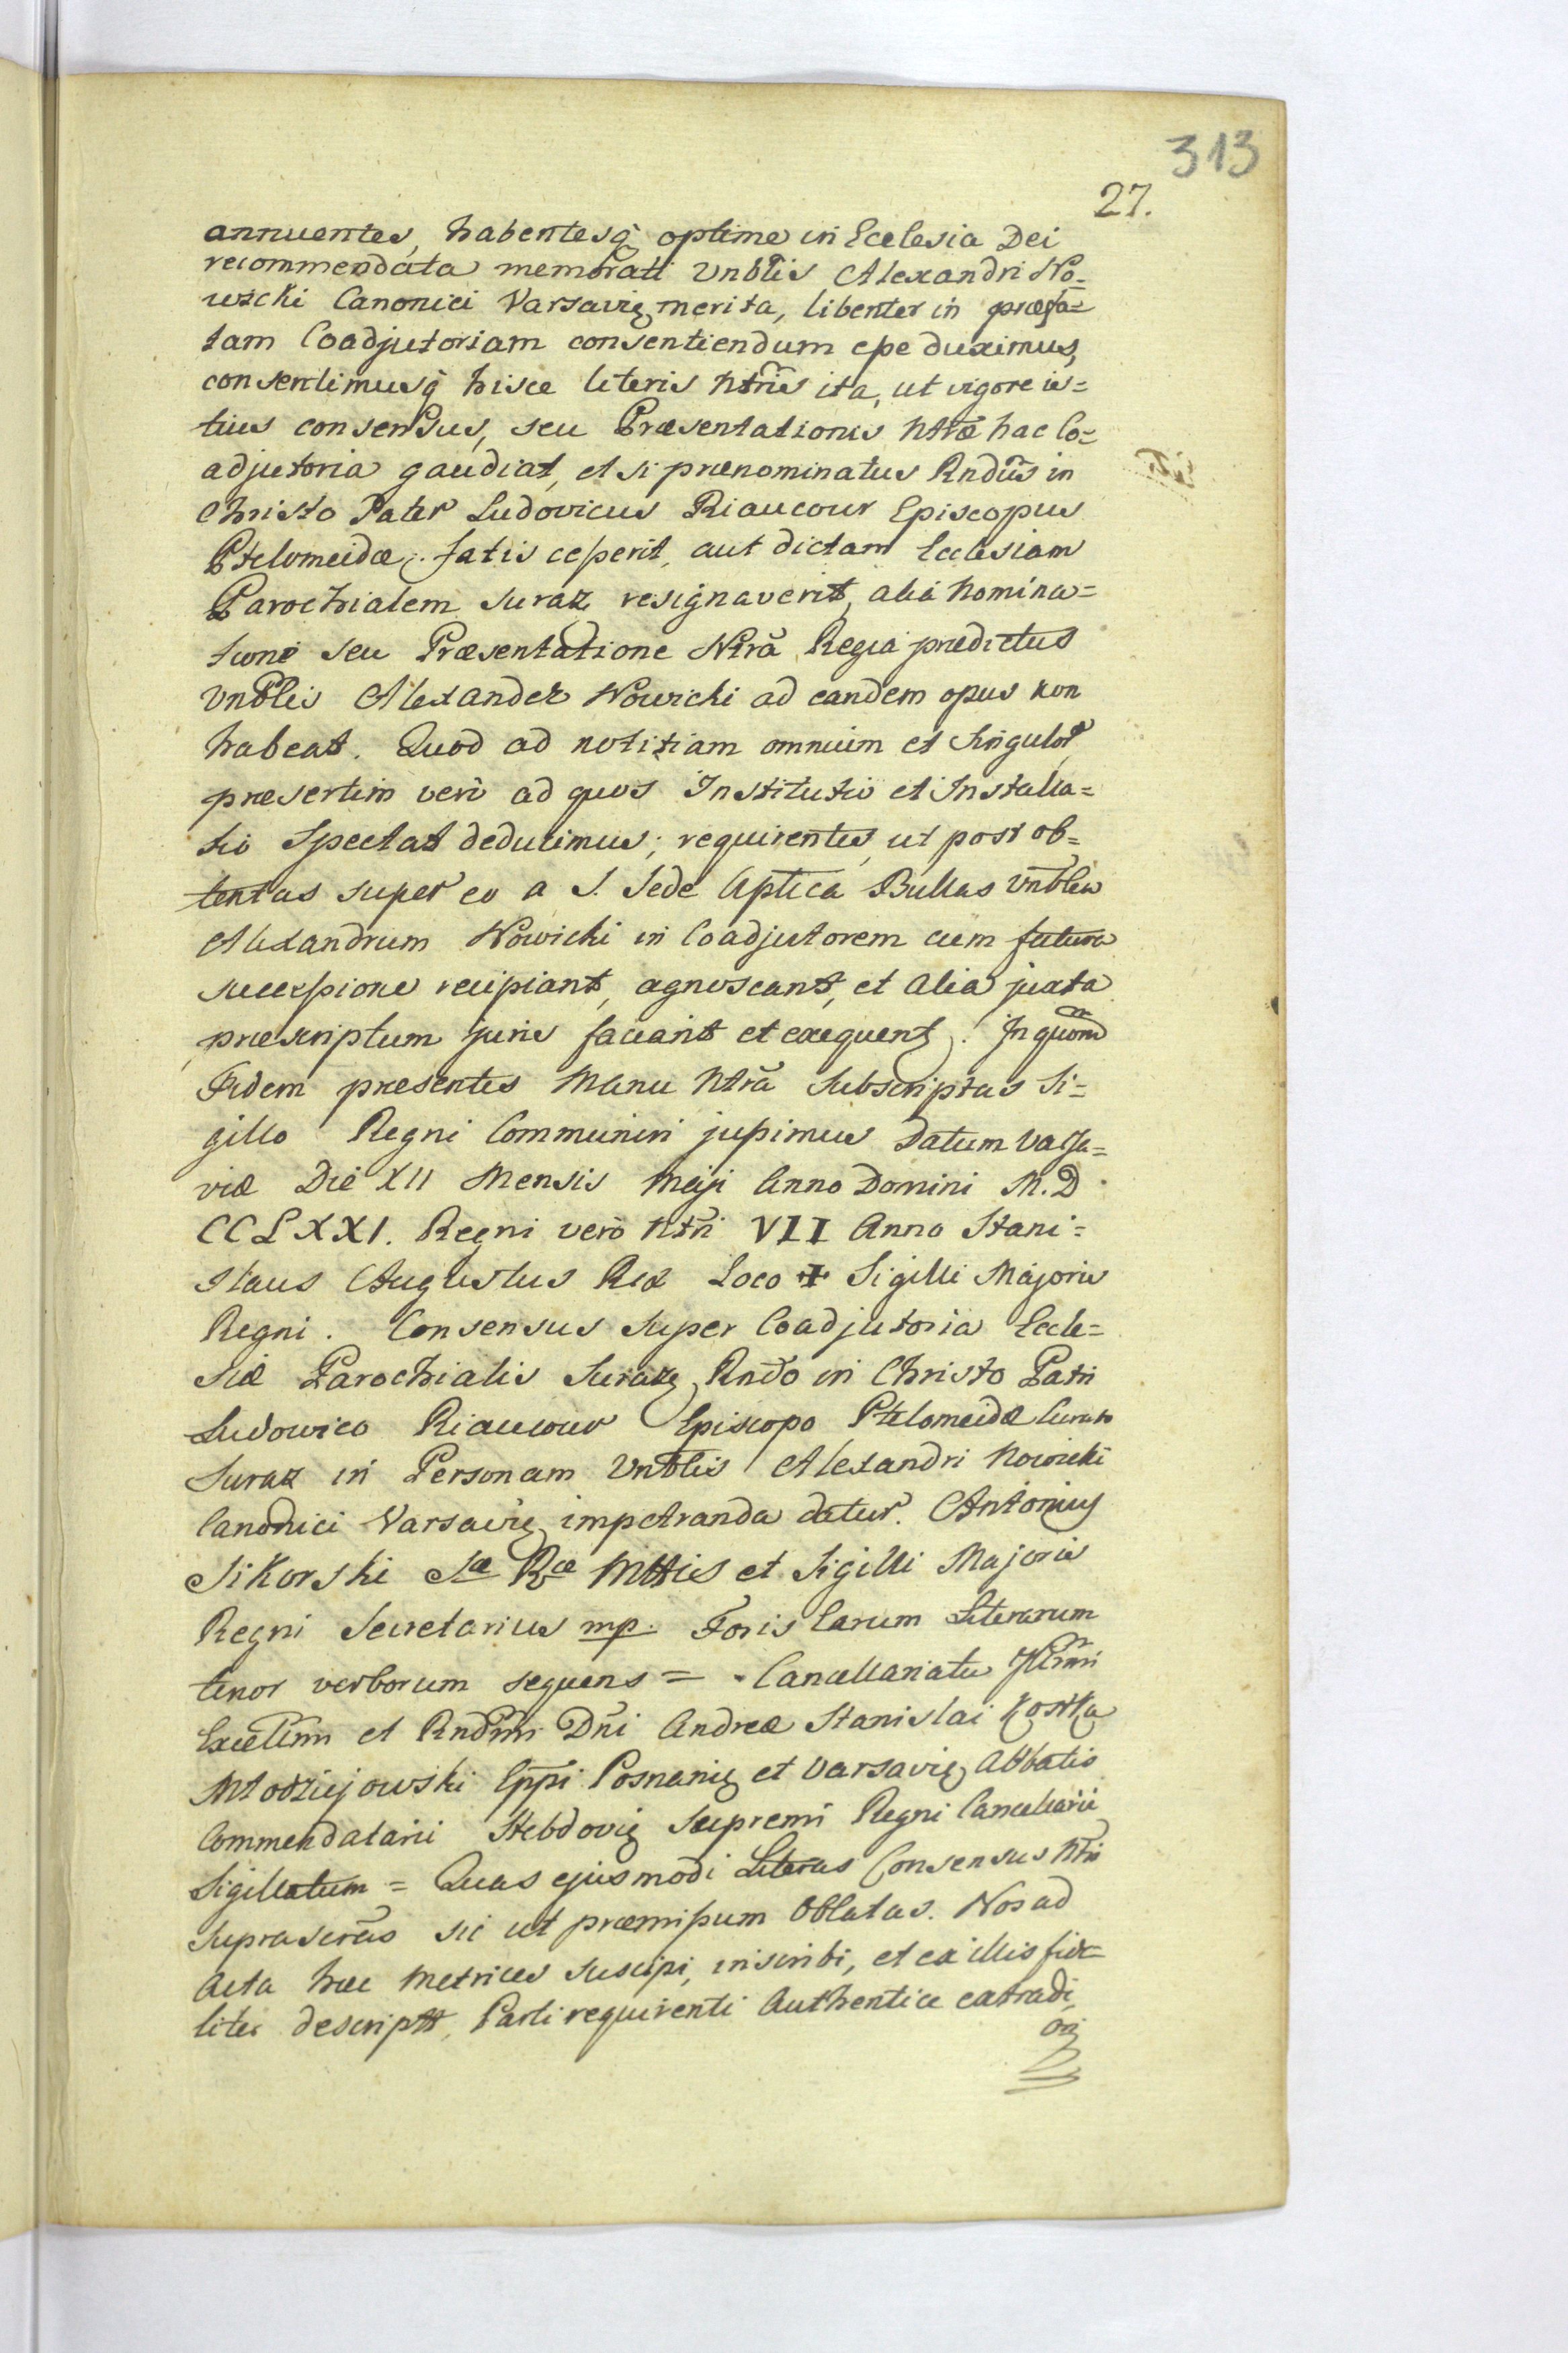 313
27.
annuentes, habentesq̃ optime in Ecclesia Dei
recommendata memorati Vnblis Alexandri No=
wicki Canonici Varsavię merita, libenter in præfa=
tam Coadjutoriam consentiendum eße duximus,
consentimusq̃ hisce literis Ntris ita, ut vigore is=
tius consensus, seu Præsentationis Ntræ hac Co=
adjutoria gaudeat, et si prænominatus Rndus in
Christo Pater Ludovicus Riaucour Episcopus
Ptelomeidæ fatis ceßerit, aut dictam Ecclesiam
Parochialem Suraz resignaverit, alia Nomina=
tione seu Præsentatione Ntrã Regia prædictus
Vnblis Alexander Nowicki ad eandem opus non
habeat. Quod ad notitiam omnium et Singulor
præsertim vero ad quos Institutio et Installa=
tio Spectat deducimus; requirentes, ut post ob=
tentas super eo a S. Sede Aptica Bullas Vnblem
Alexandrum Nowicki in Coadjutorem cum futura
succeßione recipiant, agnoscant, et alia juxta
præscriptum juris faciant et exequent. In quorũ
Fidem præsentes Manu Ntrã Subscriptas Si=
gillo Regni Communiri jußimus Datum Varsa=
viæ Die XII Mensis Maji Anno Domini M.D
CCLXXI. Regni vero Ntri VII Anno Stani=
slaus Augustus Rex Loco + Sigilli Majoris
Regni. Consensus Super Coadjutoria Eccle=
siæ Parochialis Suraz Rndo in Christo Patri
Ludovico Riaucour Episcopo Ptelomeidæ Curato
Suraz in Personam Vnblis Alexandri Nowicki
Canonici Varsavię impetranda datur. Antonius
Sikorski Sæ Ræ Mttis et Sigilli Majoris
Regni Secretarius mp. Foris Earum Literarum
tenor verborum sequens = Cancellariatu Illmi
Excellmi et Rndmi Dni Andreæ Stanislai Kostka
Młodziejowski Eppi Posnanię et Varsavię, Abbatis
Commendatarii Hebdovię Supremi Regni Cancellarii
Sigillatum = Quas ejusmodi Literas Consensus Ntri
suprascrãs sic ut præmißum Oblatas. Nos ad
Acta hæc Metrices suscipi, inscribi, et ex illis fide=
liter descriptt, Parti requirenti Authentice extradi,